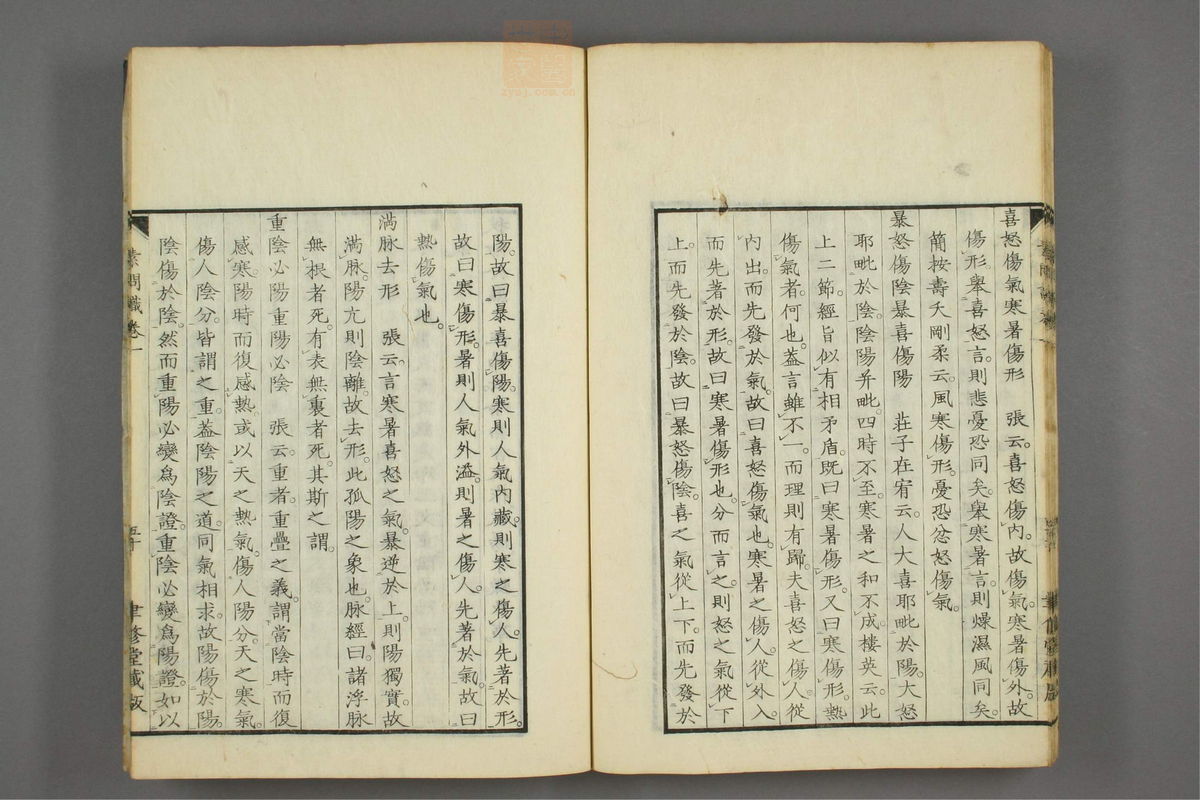 喜怒傷氣寒暑傷形　張云。喜怒傷內。故傷氣。寒暑傷外。故
傷形。舉喜怒言。則悲憂恐同矣。舉寒暑言。則燥濕風同矣。
簡按壽夭剛柔云。風寒傷形。憂恐忿怒傷氣。
暴怒傷陰暴喜傷陽　莊子在宥云。人大喜耶毗於陽。大怒
耶毗於陰。陰陽并毗。四時不至。寒暑之和不成。樓英云。此
上二節。經旨似有相矛盾。既曰寒暑傷形。又曰寒傷形。熱
傷氣者。何也。蓋言雖不一。而理則有歸。夫喜怒之傷人。從
內出。而先發於氣。故曰喜怒傷氣也。寒暑之傷人。從外入。
而先著於形。故曰寒暑傷形也。分而言之。則怒之氣從下
上。而先發於陰。故曰暴怒傷陰。喜之氣從上下。而先發於
陽。故曰暴喜傷陽。寒則人氣內藏。則寒之傷人。先著於形。
故曰寒傷形。暑則人氣外溢。則暑之傷人。先著於氣。故曰
熱傷氣也。
滿脉去形　張云。言寒暑喜怒之氣。暴逆於上。則陽獨實。故
滿脉。陽亢則陰離。故去形。此孤陽之象也。脉經曰。諸浮脉
無根者死。有表無裏者死。其斯之謂。
重陰必陽重陽必陰　張云。重者。重疊之義。謂當陰時而復
感寒。陽時而復感熱。或以天之熱氣。傷人陽分。天之寒氣。
傷人陰分。皆謂之重。蓋陰陽之道。同氣相求。故陽傷於陽。
陰傷於陰。然而重陽必變爲陰證。重陰必變爲陽證。如以
素問識卷一
聿修堂藏版